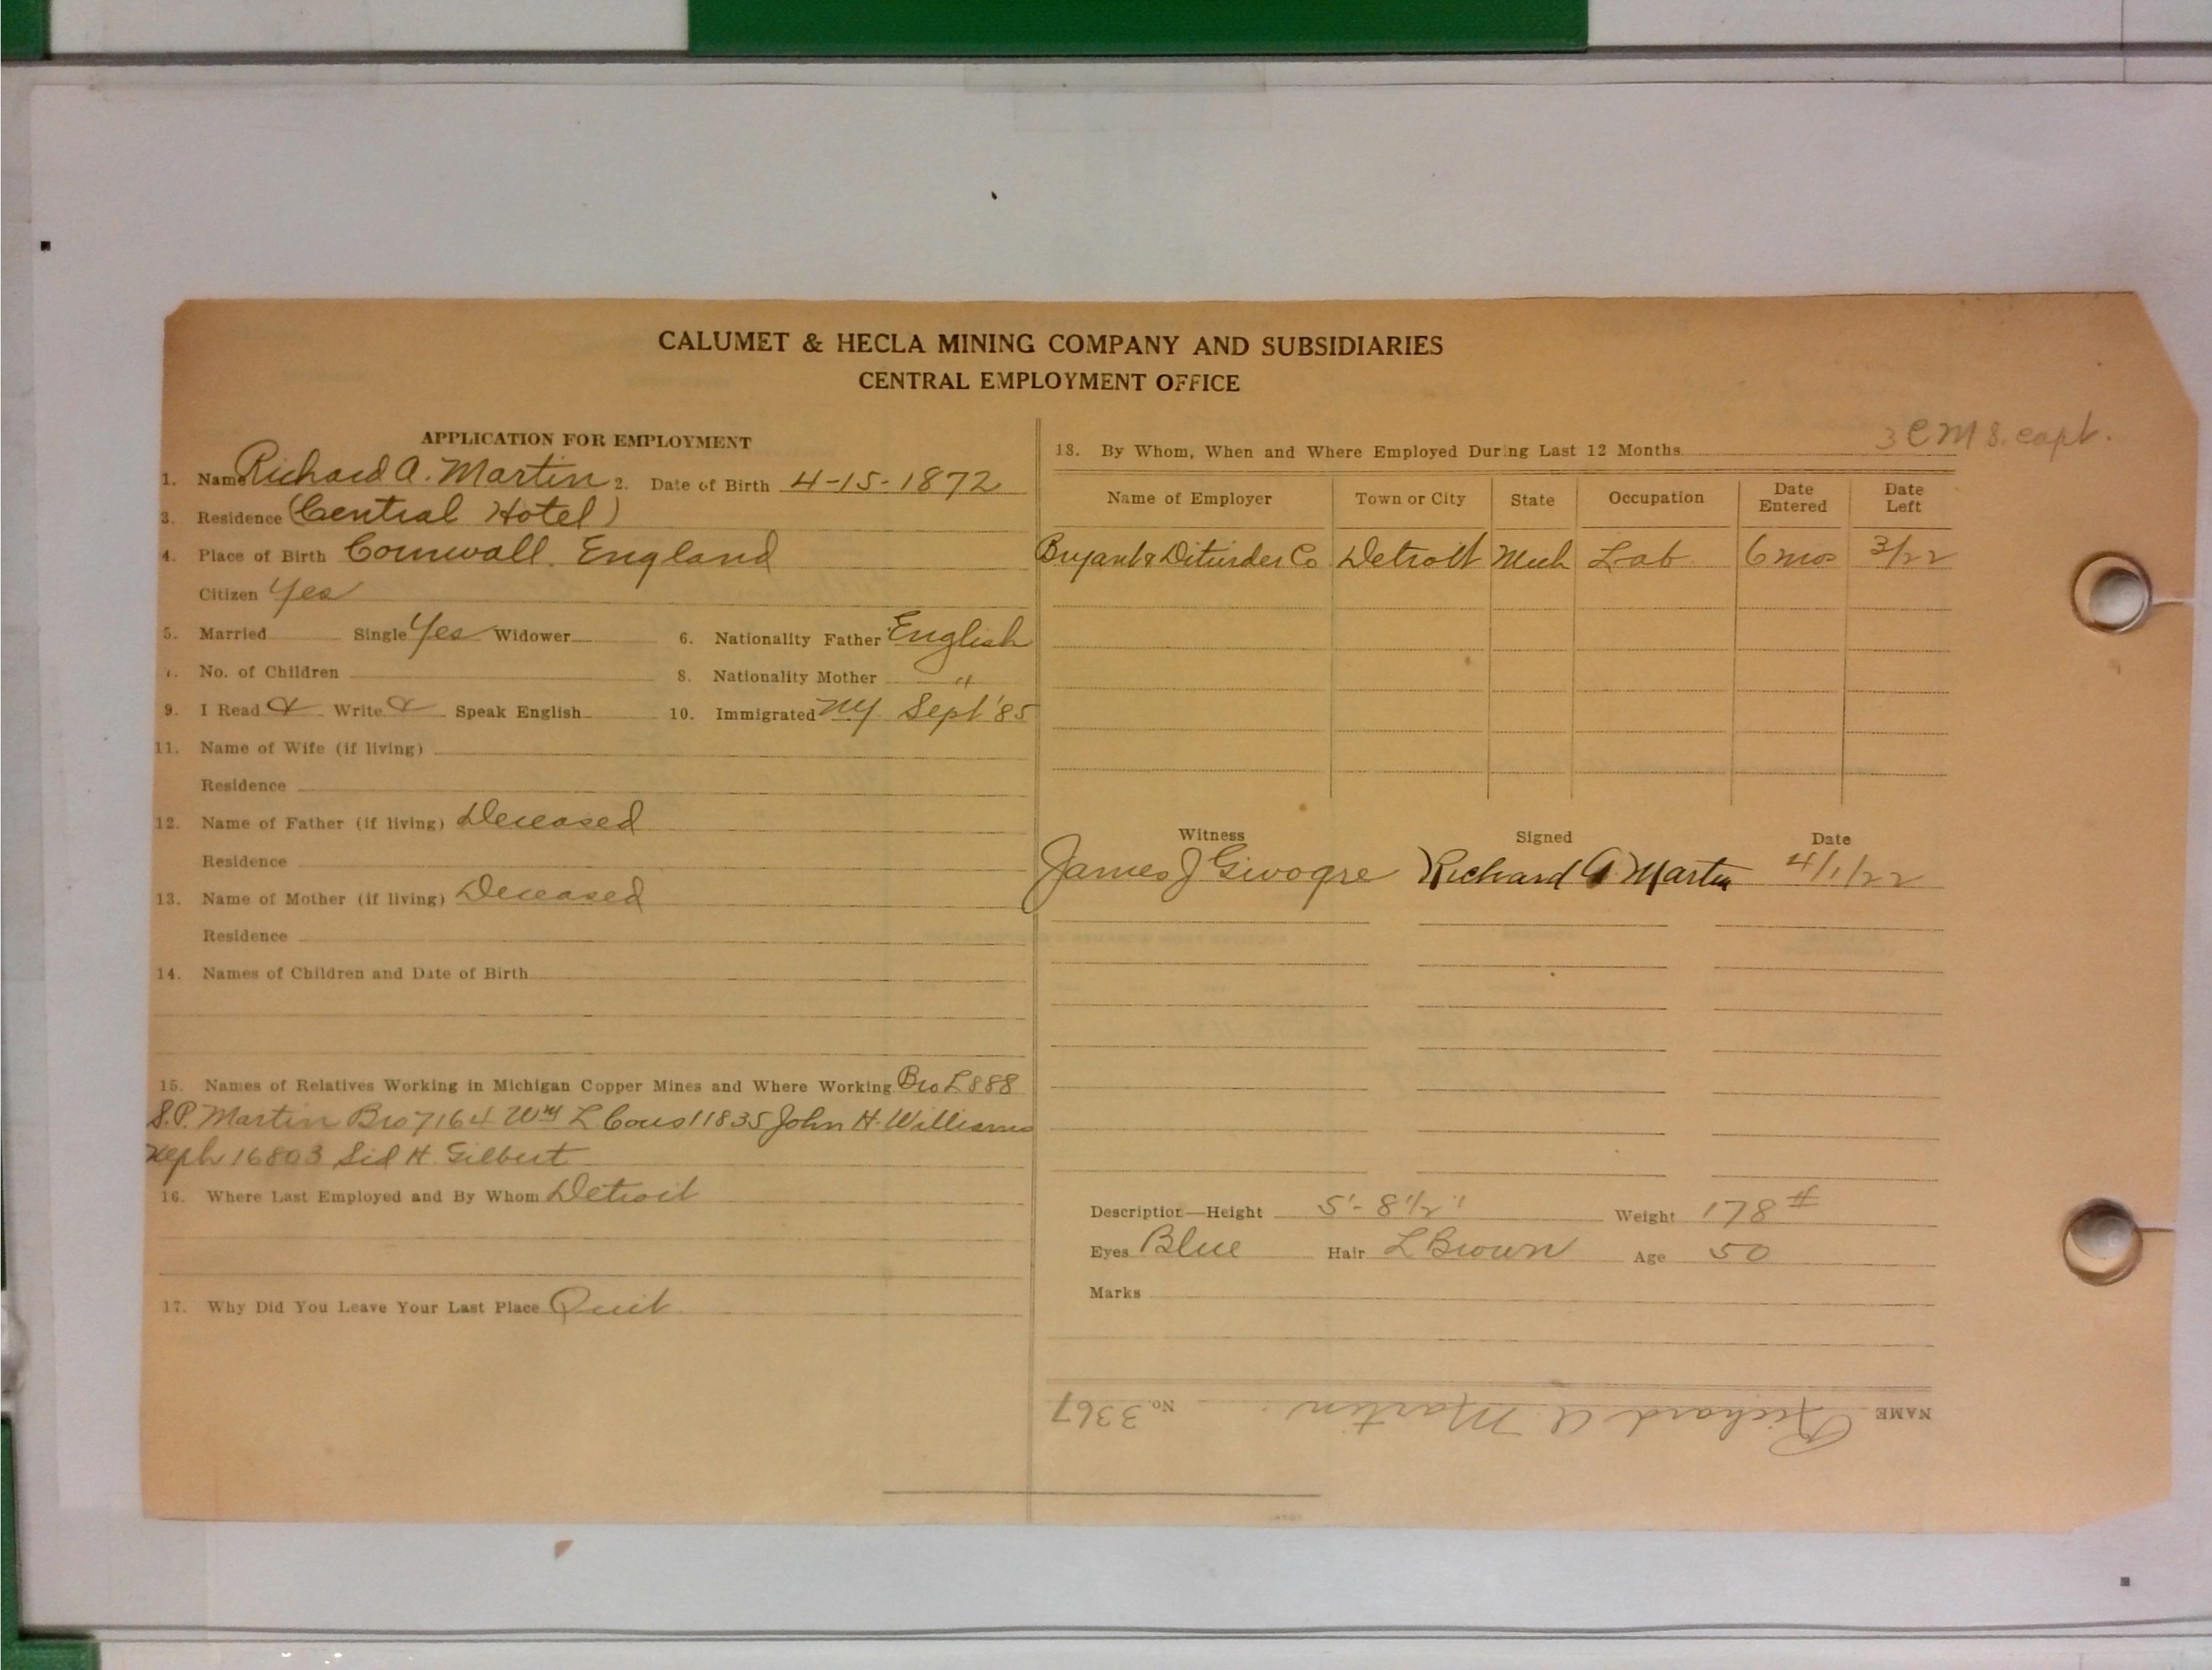 CALUMET & HECLA MINING COMPANY AND SUBSIDIARIES
CENTRAL EMPLOYMENT OFFICE
APPLICATION FOR EMPLOYMENT
1. Name Richard A. Martin 2. Date of Birth 4-15-1872
3. Residence (Central Hotel)
4. Place of Birth Cornwall. England
Citizen Yes
5. Married Single Yes Widower 6. Nationality Father English
7. No. of Children 8. Nationality Mother "
9. I Read & Write & Speak English 10. Immigrated NY Sept '85
11. Name of Wife (if living)
Residence
12. Name of Father (if living) Deceased
Residence
13. Name of Mother (if living) Deceased
Residence
14. Names of Children and Date of Birth
15. Names of Relatives Working in Michigan Copper Mines and Where Working Bro L888
S.P. Martin Bro 7164 Wm L Cous 11835 John H. Williams
Neph 16803 Sid H. Gilbert
16. Where Last Employed and By Whom Detroit
17. Why Did You Leave Your Last Place Quit
3 C M S. capt.
18. By Whom, When and Where Employed During Last 12 Months
Name of Employer Town or City State Occupation Date Entered Date Left
Bryant & Co Detroit Mich Lab 6 mos 3/22
Witness Signed Date
James J Richard A Martin 4/1/22
Description—Height 5'-8 1/2" Weight 178 #
Eyes Blue Hair L Brown Age 50
Marks
NAME Richard A Martin. No. 3367